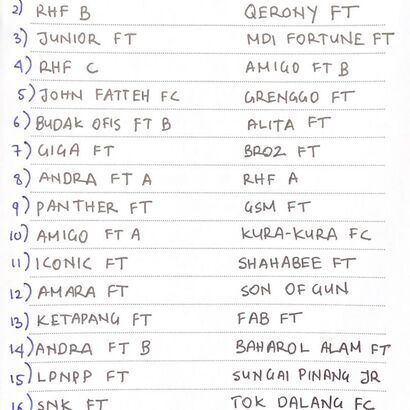 2) RHF B QERONY FT
3) JUNIOR FT MDI FORTUNE FT
4) RHF C AMIGO FT B
5) JOHN FATTEH FC GRENGGO FT
6) BUDAK OFIS FT B ALITA FT
7) GIGA FT BROZ FT
8) ANDRA FT A RHF A
9) PANTHER FT GSM FT
10) AMIGO FT A KURA-KURA FC
11) ICONIC FT SHAHABEE FT
12) AMARA FT SON OF GUN
13) KETAPANG FT FAB FT
14) ANDRA FT B BAHAROL ALAM FT
15) LPNPP FT SUNGAI PINANG JR
16) SNK FT TOK DALANG FC